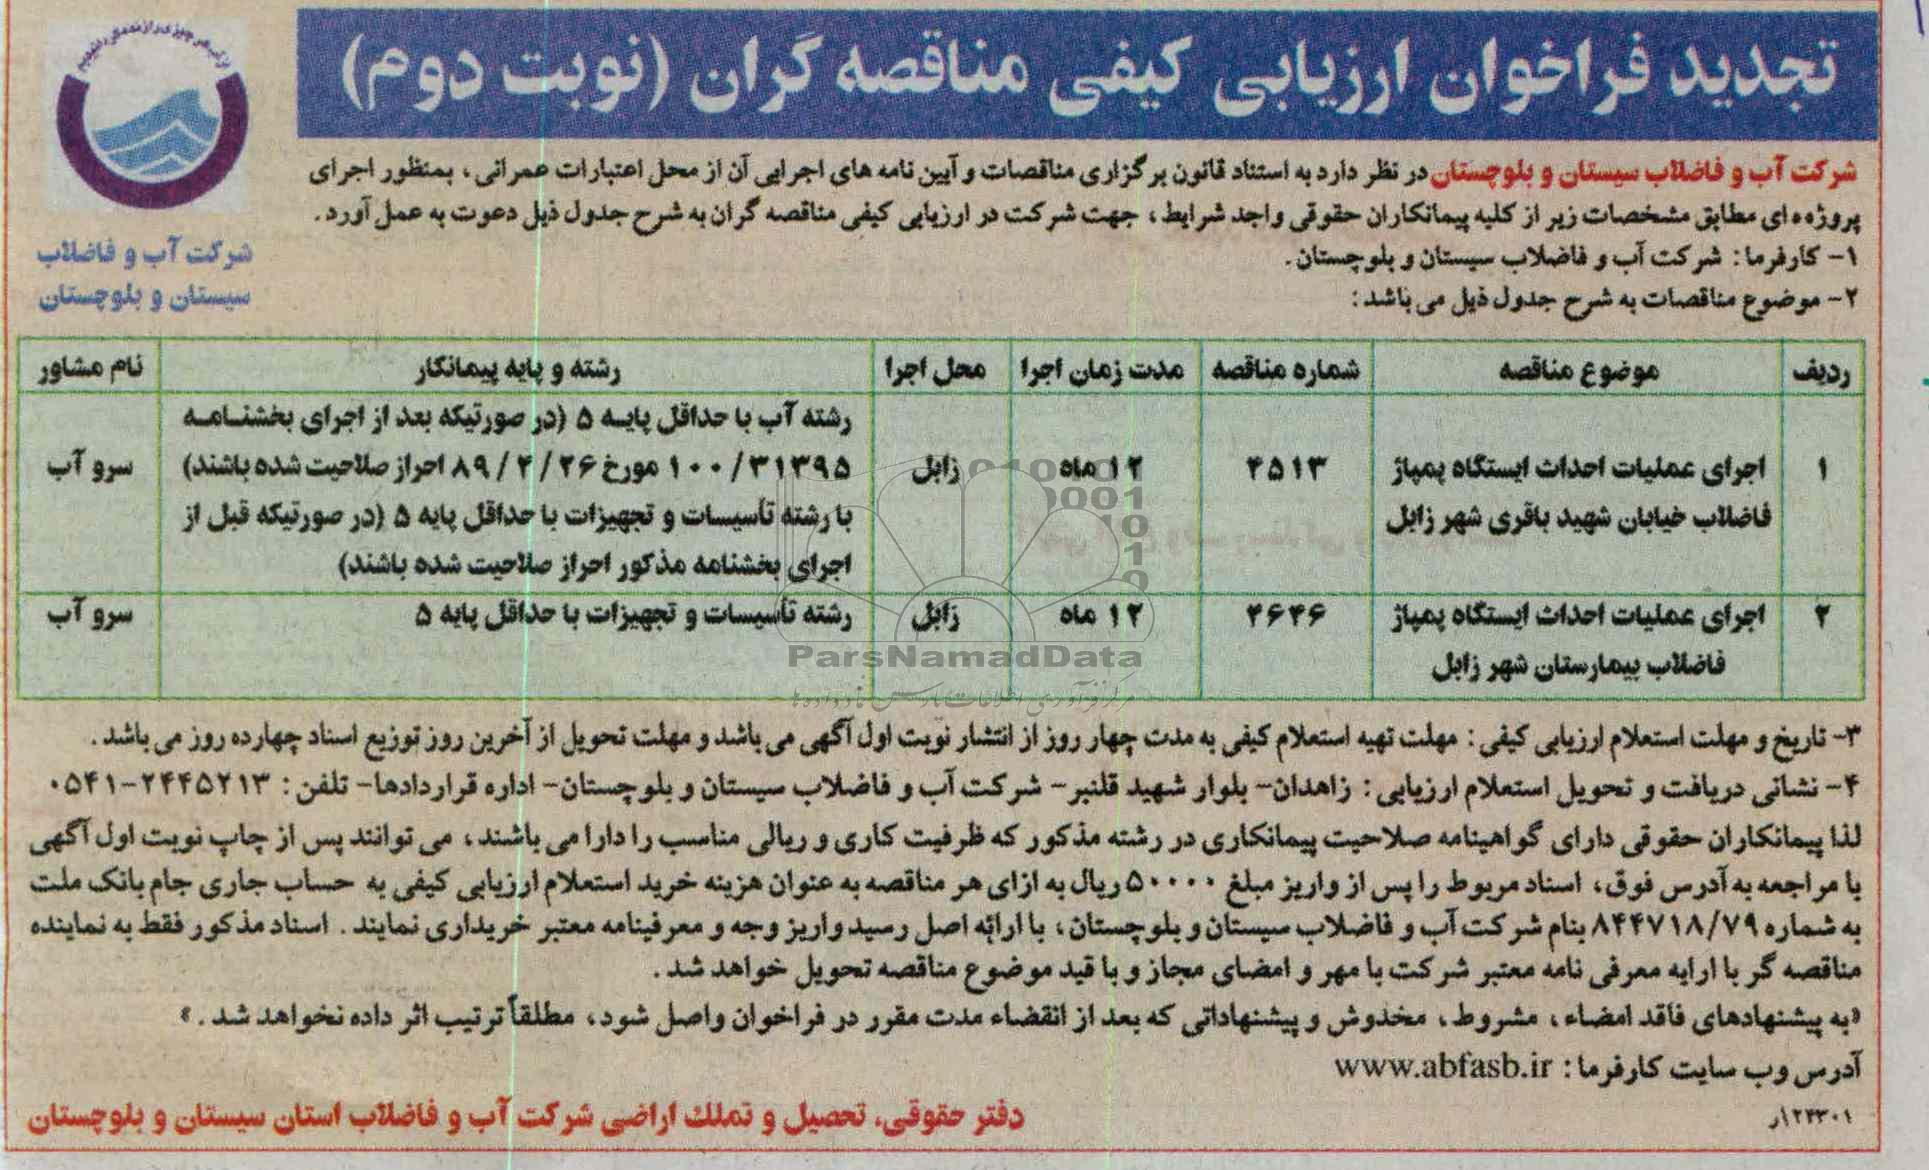 تجدید فراخوان ارزیابی کیفی مناقصه گران (نوبت دوم)
شرکت آب و فاضلاب
سیستان و بلوچستان
شرکت آب و فاضلاب سیستان و بلوچستان در نظر دارد به استناد قانون برگزاری مناقصات و آیین نامه های اجرایی آن از محل اعتبارات عمرانی، بمنظور اجرای
پروژه ای مطابق مشخصات زیر از کلیه پیمانکاران حقوقی واجد شرایط، جهت شرکت در ارزیابی کیفی مناقصه گران به شرح جدول ذیل دعوت به عمل آورد.
۱- کارفرما: شرکت آب و فاضلاب سیستان و بلوچستان.
۲- موضوع مناقصات به شرح جدول ذیل می باشد:
ردیف موضوع مناقصه شماره مناقصه مدت زمان اجرا محل اجرا رشته و پایه پیمانکار نام مشاور
۱ اجرای عملیات احداث ایستگاه پمپاژ فاضلاب خیابان شهید باقری شهر زابل ۴۵۱۳ ۱۲ ماه زابل رشته آب با حداقل پایه ۵ (در صورتیکه بعد از اجرای بخشنامه
۱۰۰/۳۱۳۹۵ مورخ ۸۹/۴/۲۶ احراز صلاحیت شده باشند)
با رشته تأسیسات و تجهیزات با حداقل پایه ۵ (در صورتیکه قبل از
اجرای بخشنامه مذکور احراز صلاحیت شده باشند) سرو آب
۲ اجرای عملیات احداث ایستگاه پمپاژ فاضلاب بیمارستان شهر زابل ۴۶۴۶ ۱۲ ماه زابل رشته تأسیسات و تجهیزات با حداقل پایه ۵ سرو آب
ParsNamadData
۳- تاریخ و مهلت استعلام ارزیابی کیفی: مهلت تهیه استعلام کیفی به مدت چهار روز از انتشار نوبت اول آگهی می باشد و مهلت تحویل از آخرین روز توزیع اسناد چهارده روز می باشد.
۴- نشانی دریافت و تحویل استعلام ارزیابی: زاهدان- بلوار شهید قلنبر- شرکت آب و فاضلاب سیستان و بلوچستان- اداره قراردادها- تلفن: ۲۴۴۵۲۱۳-۰۵۴۱
لذا پیمانکاران حقوقی دارای گواهینامه صلاحیت پیمانکاری در رشته مذکور که ظرفیت کاری و ریالی مناسب را دارا می باشند، می توانند پس از چاپ نوبت اول آگهی
با مراجعه به آدرس فوق، اسناد مربوط را پس از واریز مبلغ ۵۰۰۰۰ ریال به ازای هر مناقصه به عنوان هزینه خرید استعلام ارزیابی کیفی به حساب جاری جام بانک ملت
به شماره ۸۴۴۷۱۸/۷۹ بنام شرکت آب و فاضلاب سیستان و بلوچستان، با ارائه اصل رسید واریز وجه و معرفینامه معتبر خریداری نمایند. اسناد مذکور فقط به نماینده
مناقصه گر با ارایه معرفی نامه معتبر شرکت با مهر و امضای مجاز و با قید موضوع مناقصه تحویل خواهد شد.
«به پیشنهادهای فاقد امضاء، مشروط، مخدوش و پیشنهاداتی که بعد از انقضاء مدت مقرر در فراخوان واصل شود، مطلقاً ترتیب اثر داده نخواهد شد.»
آدرس وب سایت کارفرما: www.abfasb.ir
دفتر حقوقی، تحصیل و تملک اراضی شرکت آب و فاضلاب استان سیستان و بلوچستان
۱۲۴۳۰۱/ر